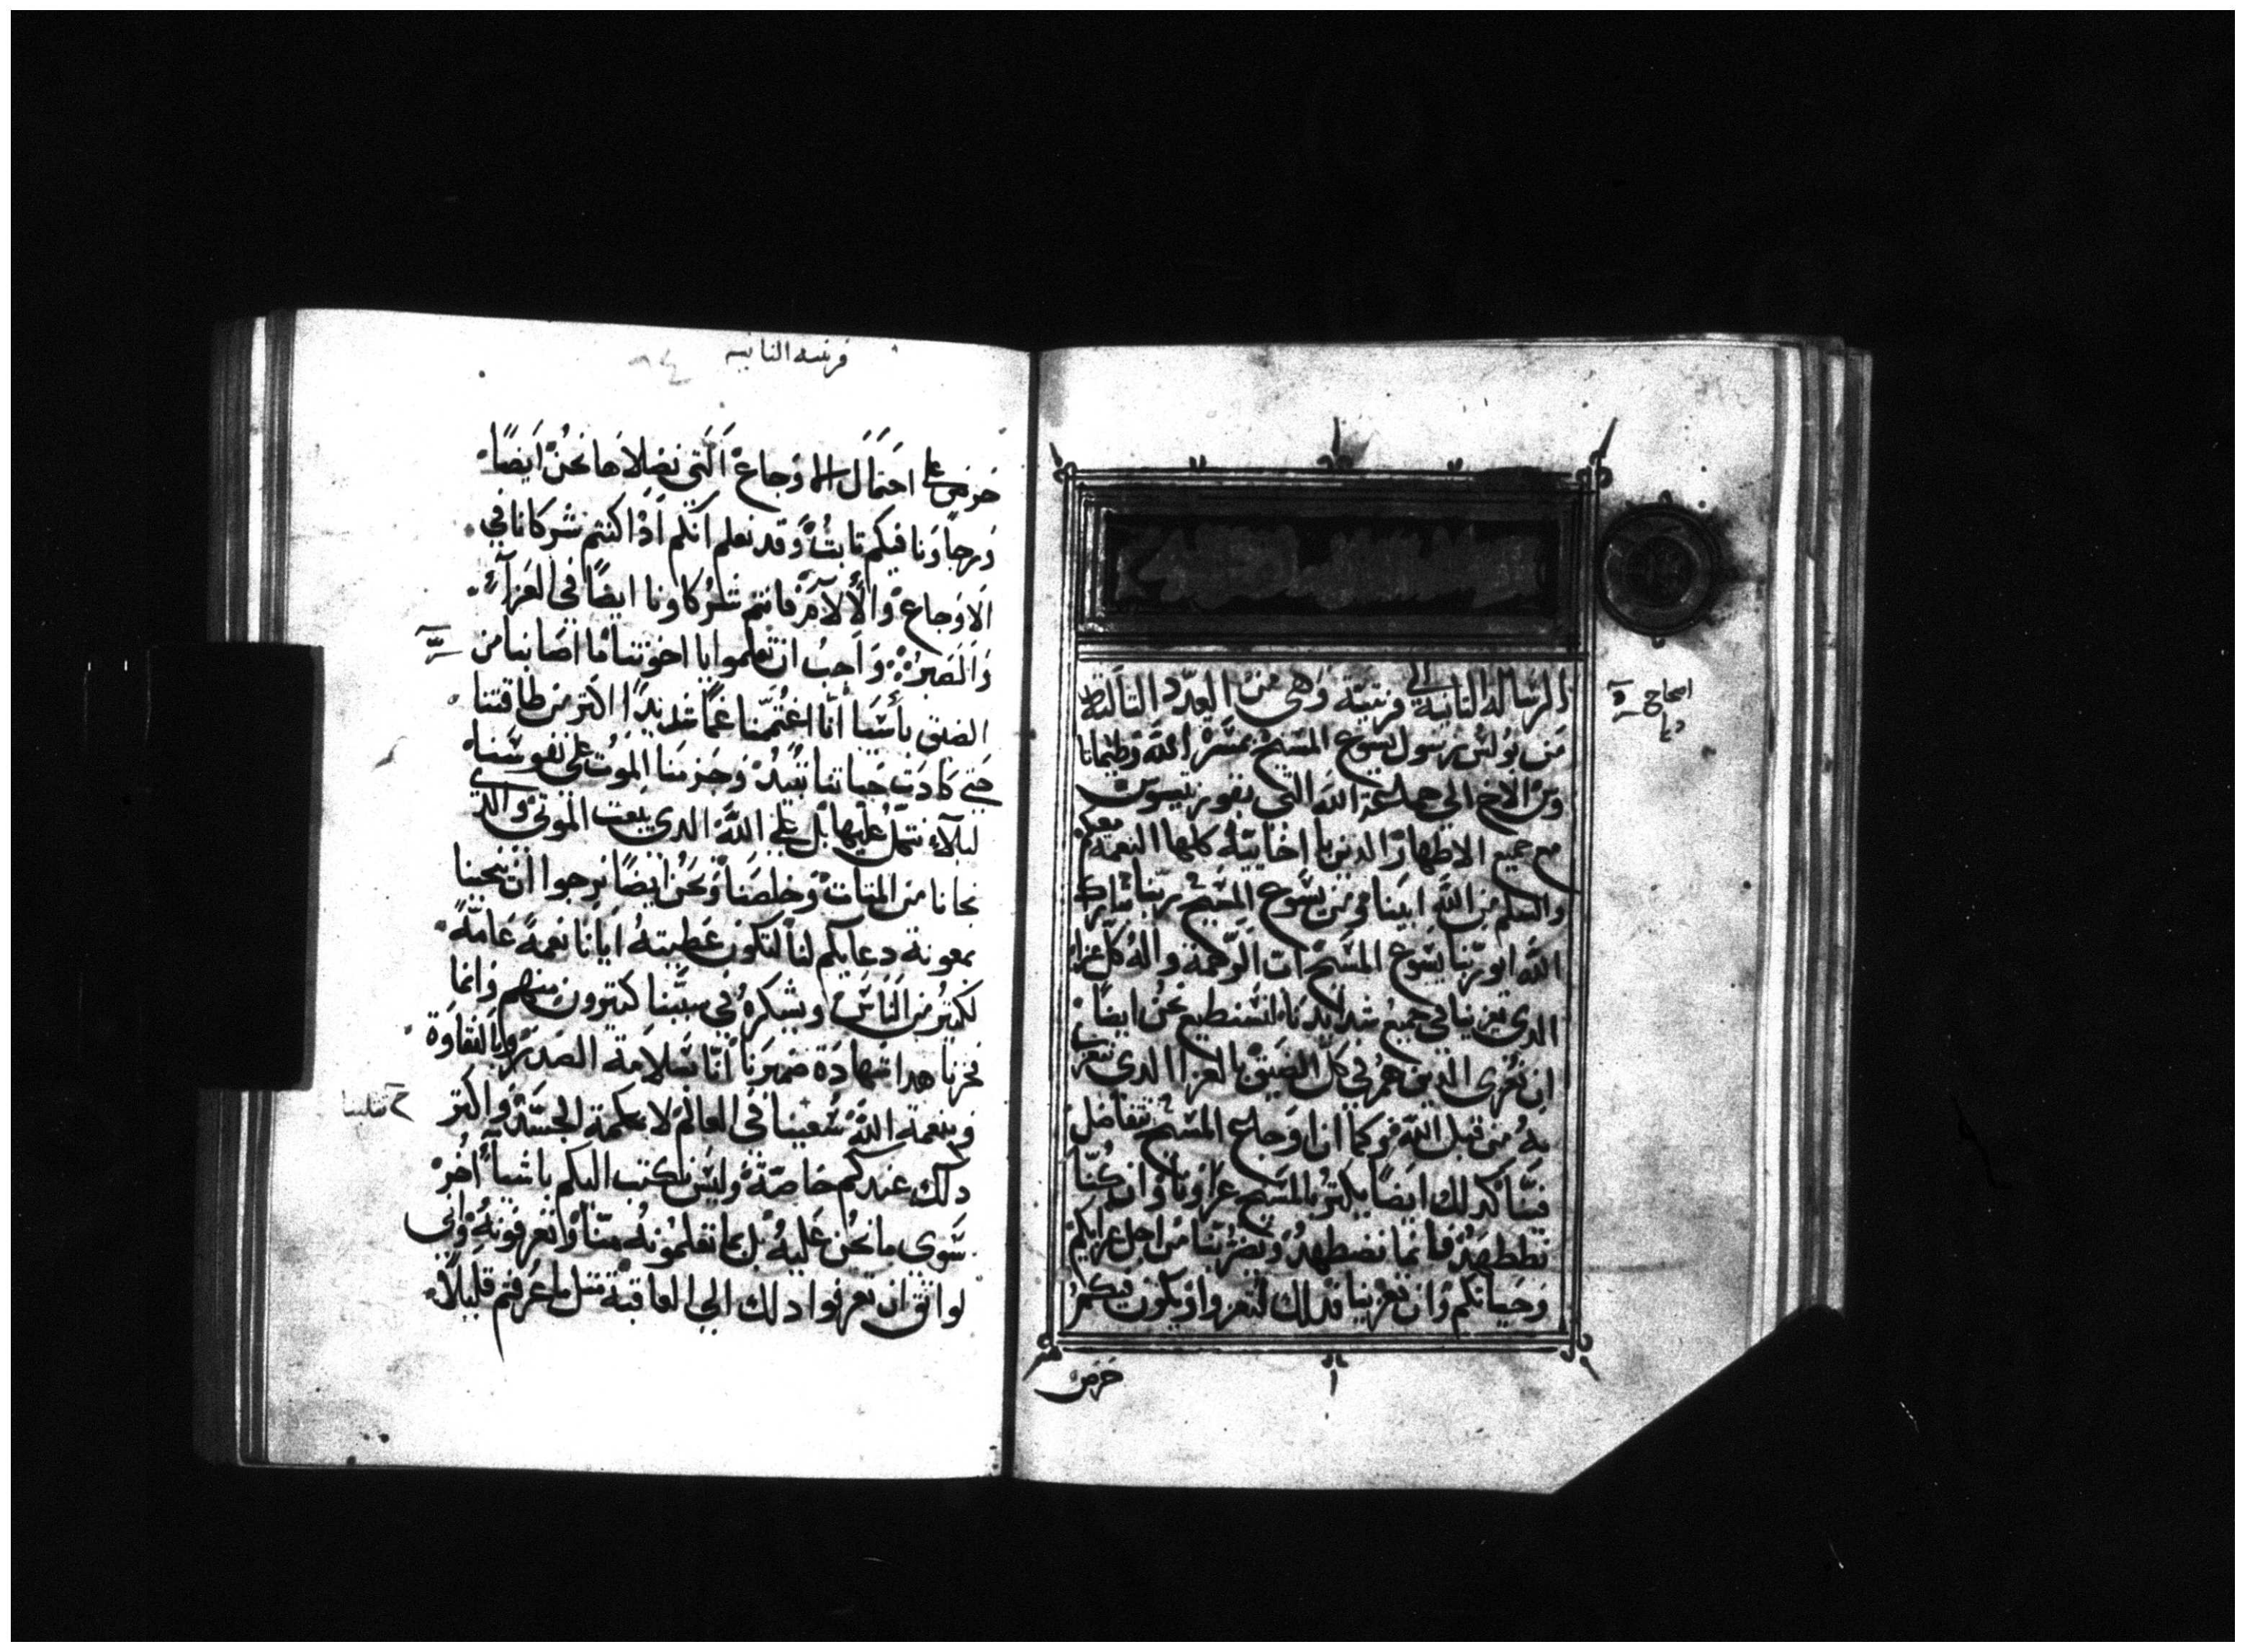 الرساله الثانية الي قرنتية وهي من العدد الثالثة
من بولس رسول يسوع المسيح بمسرة الله وطيماتا
وس الاخ الي جماعة الله التي بقورنتيوس
مع جميع الاطهار الدين باخاييه كلها النعمة معكم
والسلم من الله ابينا ومن يسوع المسيح ربنا تبارك
الله ابو ربنا يسوع المسيح اب الرحمة واله كل عزا
الدى يعزينا في جميع شدايدنا لنستطيع نحن ايضا
ان نعزى الدين هم في كل الضيق بالعزا الدى نتعزى
به من قبل الله وكما ان اوجاع المسيح تتفاضل
فينا كدلك ايضا يكثر بالمسيح عزاونا وان كنا
نضطهد فانما نضطهد من اجل عزايكم
وحياتكم وان تعزينا فدلك لتعزوا ويكون فيكم
حرص
اصحاح
قرنتيه الثانيه
حرص على احتمال الاوجاع التي نصلاها نحن ايضا
ورجاونا فيكم ثابت وقد نعلم انكم اذا كنتم شركانا في
الاوجاع والالام فانتم شركاونا ايضا في العزآء
والصبر واحب ان تعلموا يا اخوتنا ما اصابنا من
الضيق باسيا انا اغتممنا غما شديدا اكثر من طاقتنا
حتى كادت حياتنا تبيد وحزمنا الموت على نفوسنا
ليلا نتكل عليها بل على الله الدى يبعث الموتى والدى
نجانا من الميتات وخلصنا ونحن ايضا نرجوا ان ينجينا
بمعونة دعايكم لنا لتكون عطيته ايانا نعمة عامة
لكثير من الناس ويشكره في سببنا كثيرون منهم وانما
فخرنا هدا شهادة ضميرنا انا بسلامة الصدر وبالنقاوة
وبنعمة الله سعينا في العالم لا بحكمة الجسد واكثر
دلك عندكم خاصة وليس نكتب اليكم باشيا اخر
سوى ما نحن عليه بل بما تعلمونه منا وتعرفونه وانى
لواثق ان تعرفوا دلك الي العاقبة مثل ما عرفتم قليلا